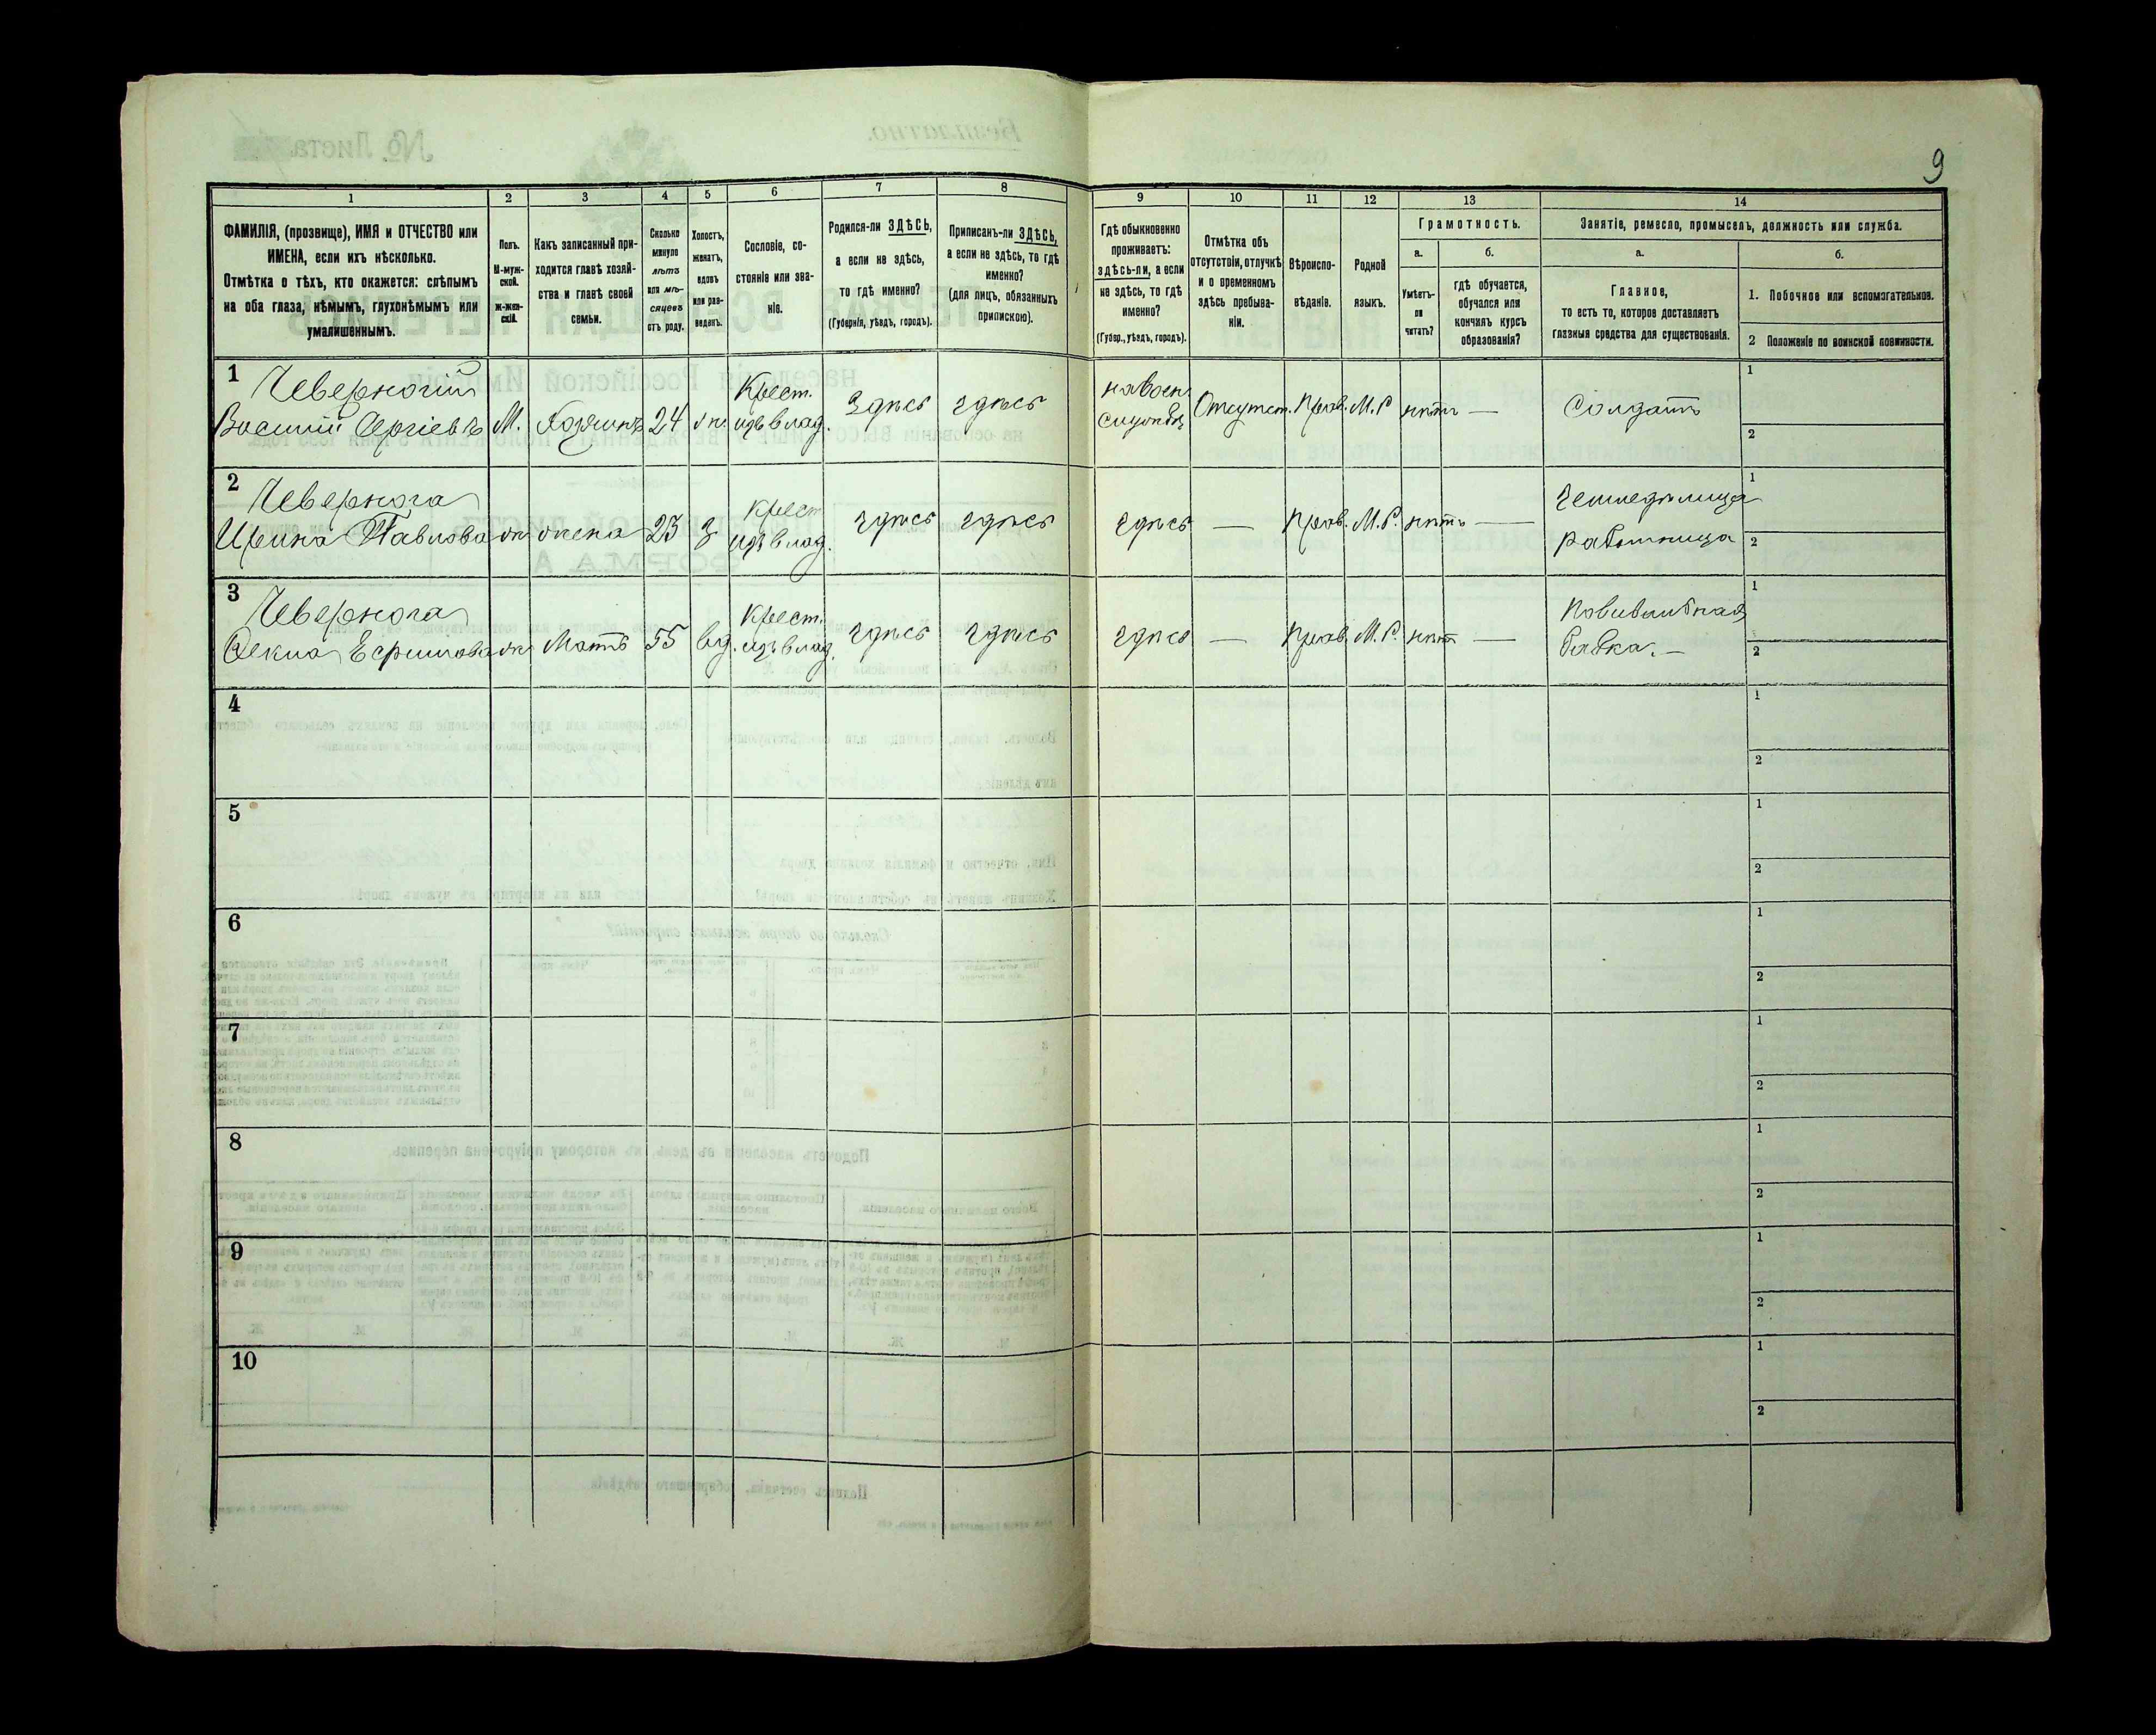 9
1
2
3
4
5
6
7
8
9
10
11
12
13
14
ФАМИЛІЯ, (прозвище), ИМЯ и ОТЧЕСТВО или
ИМЕНА, если ихъ нѣсколько.
Отмѣтка о тѣхъ, кто окажется: слѣпымъ
на оба глаза, нѣмымъ, глухонѣмымъ или
умалишеннымъ.
Полъ.
М-муж-
ской.
ж-жен-
скій.
Какъ записанный при-
ходится главѣ хозяй-
ства и главѣ своей
семьи.
Сколько
минуло
лѣтъ
или мѣ-
сяцевъ
отъ роду.
Холостъ,
женатъ,
вдовъ
или раз-
веденъ.
Сословіе, со-
стояніе или зва-
ніе.
Родился-ли ЗДѢСЬ,
а если не здѣсь,
то гдѣ именно?
(Губернія, уѣздъ, городъ).
Приписанъ-ли ЗДѢСЬ,
а если не здѣсь, то гдѣ
именно?
(для лицъ, обязанныхъ
припискою).
Гдѣ обыкновенно
проживаетъ:
здѣсь-ли, а если
не здѣсь, то гдѣ
именно?
(Губер., уѣздъ, городъ).
Отмѣтка объ
отсутствіи, отлучкѣ
и о временномъ
здѣсь пребыва-
ніи.
Вѣроиспо-
вѣданіе.
Родной
языкъ.
Грамотность.
а.
Умѣетъ-
ли
читать?
б.
гдѣ обучается,
обучался или
кончилъ курсъ
образованія?
Занятіе, ремесло, промыселъ, должность или служба.
а.
Главное,
то есть то, которое доставляетъ
главныя средства для существованія.
б.
1. Побочное или вспомогательное.
2 Положеніе по воинской повинности.
1
Чевериогій
Василій Сергіевъ М. Хозяинъ 24 ж. Крест. изъ влад. Здѣсь здѣсь
Отсутст. Прав. М. Р. нѣтъ — Солдатъ
1
2
2
Чевернога
Ирина Павлова ж. жена 23 з Крест. изъ влад. здѣсь здѣсь
здѣсь — Прав. М. Р. нѣтъ —
работница
1
2
3
Чевернога
Ефимова ж. Мать 55 вд. Крест. изъ влад. здѣсь здѣсь
здѣсь — Прав. М. Р. нѣтъ — Повивальная
бабка. —
1
2
4
1
2
5
1
2
6
1
2
7
1
2
8
1
2
9
1
2
10
1
2